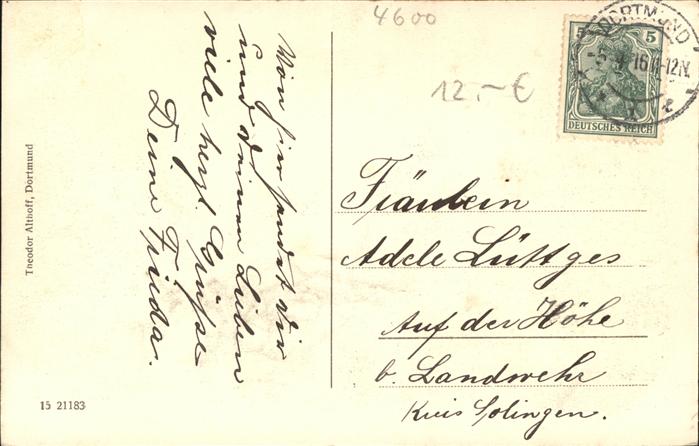 4600
12,- €
DORTMUND
5 5
DEUTSCHES REICH
Von hier sendet dir
und deinen Lieben
viele herzl. Grüße
Deine Frieda.
Fräulein
Adele Lüttges
Auf der Höhe
b. Landwehr
Kreis Solingen.
Theodor Althoff, Dortmund
15 21183